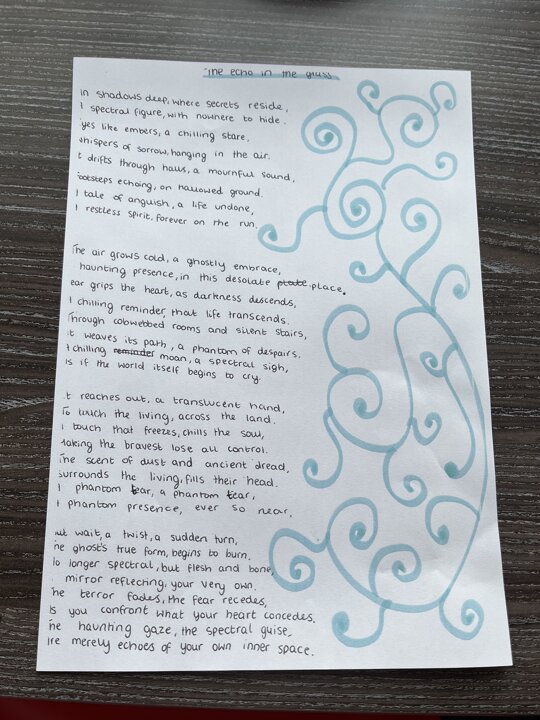 The echo in the glass
In shadows deep, where secrets reside,
A spectral figure, with nowhere to hide.
yes like embers, a chilling stare,
whispers of sorrow, hanging in the air.
t drifts through halls, a mournful sound,
footsteps echoing, on hallowed ground.
A tale of anguish, a life undone,
A restless spirit, forever on the run.
The air grows cold, a ghostly embrace,
haunting presence, in this desolate place.
ear grips the heart, as darkness descends,
A chilling reminder, that life transcends.
Through cobwebbed rooms and silent stairs,
it weaves its path, a phantom of despairs.
A chilling moan, a spectral sigh,
As if the world itself begins to cry.
It reaches out, a translucent hand,
To touch the living, across the land.
A touch that freezes, chills the soul,
Making the bravest lose all control.
The scent of dust and ancient dread,
Surrounds the living, fills their head.
A phantom fear, a phantom tear,
A phantom presence, ever so near.
ut wait, a twist, a sudden turn,
he ghost's true form, begins to burn.
No longer spectral, but flesh and bone,
mirror reflecting, your very own.
The terror fades, the fear recedes,
As you confront what your heart concedes.
The haunting gaze, the spectral guise,
Are merely echoes of your own inner space.